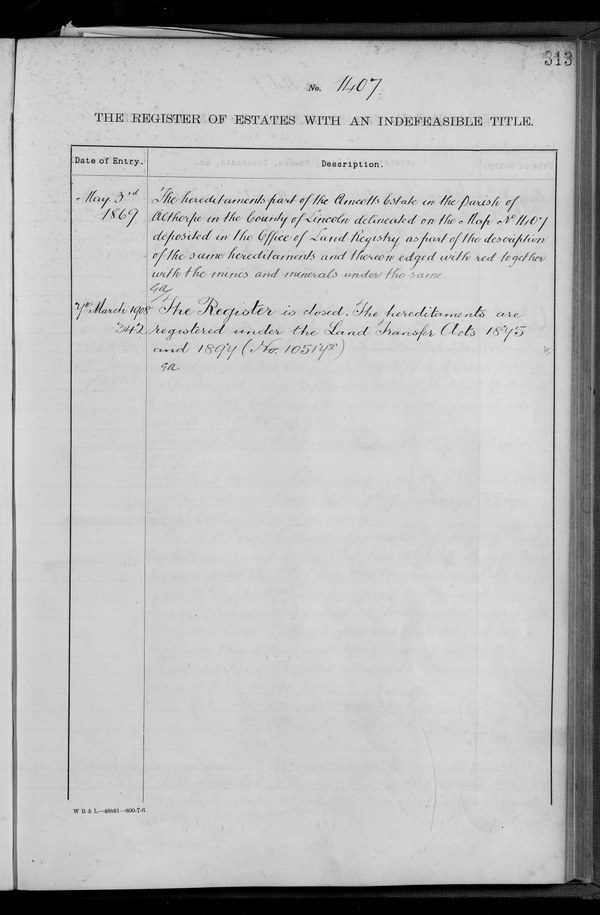 313
No. 1407
THE REGISTER OF ESTATES WITH AN INDEFEASIBLE TITLE.
Date of Entry. Description.
May 3rd The hereditaments part of the Amcotts Estate in the Parish of
1869 Althorpe in the County of Lincoln delineated on the Map No 1407
deposited in the Office of Land Registry as part of the description
of the same hereditaments and thereon edged with red together
with the mines and minerals under the same.
GA
7th March 1908 The Register is closed. The hereditaments are
342 registered under the Land Transfer Acts 1875
and 1897 (No. 10517)
GA
W B & L—48881—800-7-6